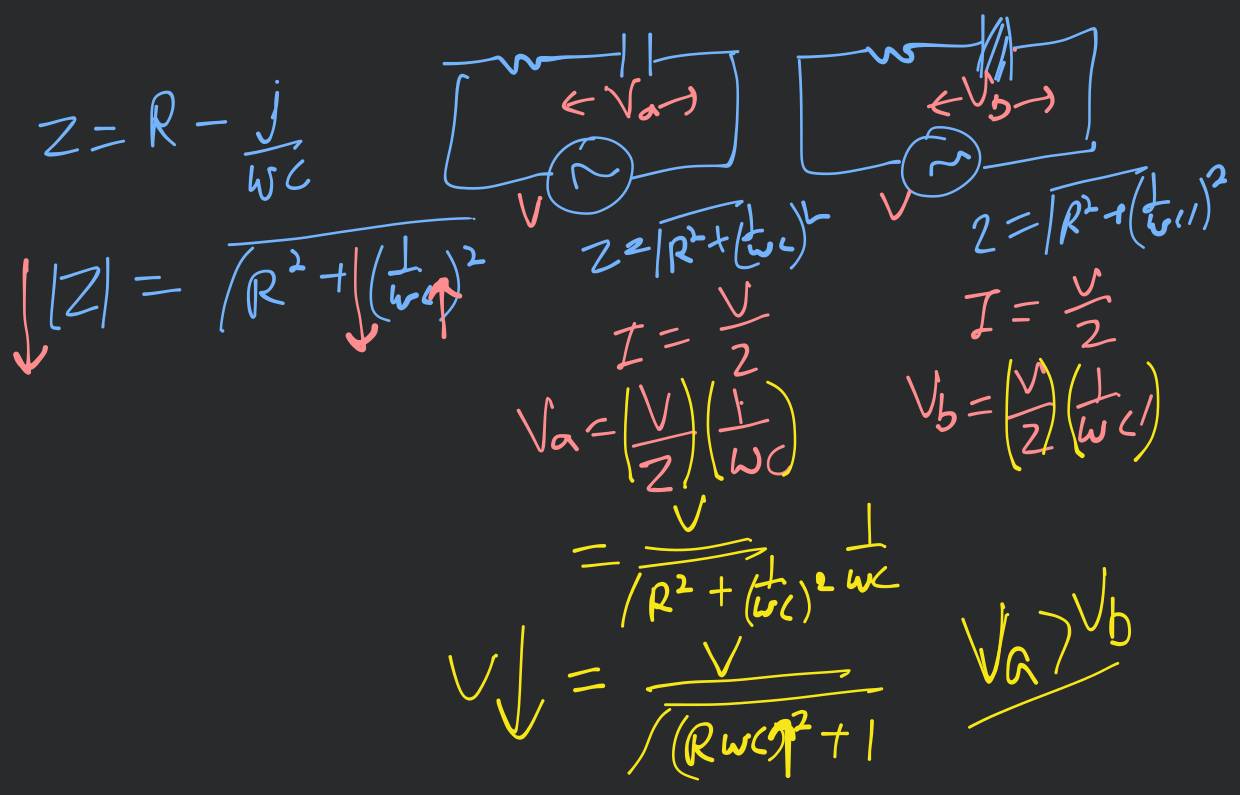 Z = R - j/ωC
|Z| = √(R² + (1/ωC)²)
Va
V
Z = √(R² + (1/ωC)²)
I = V/Z
Va = (V/Z)(1/ωC)
= V/√(R² + (1/ωC)²) 1/ωC
V↓ = V/√((RωC)² + 1)
Vb
V
Z = √(R² + (1/ωC')²)
I = V/Z
Vb = (V/Z)(1/ωC')
Va > Vb